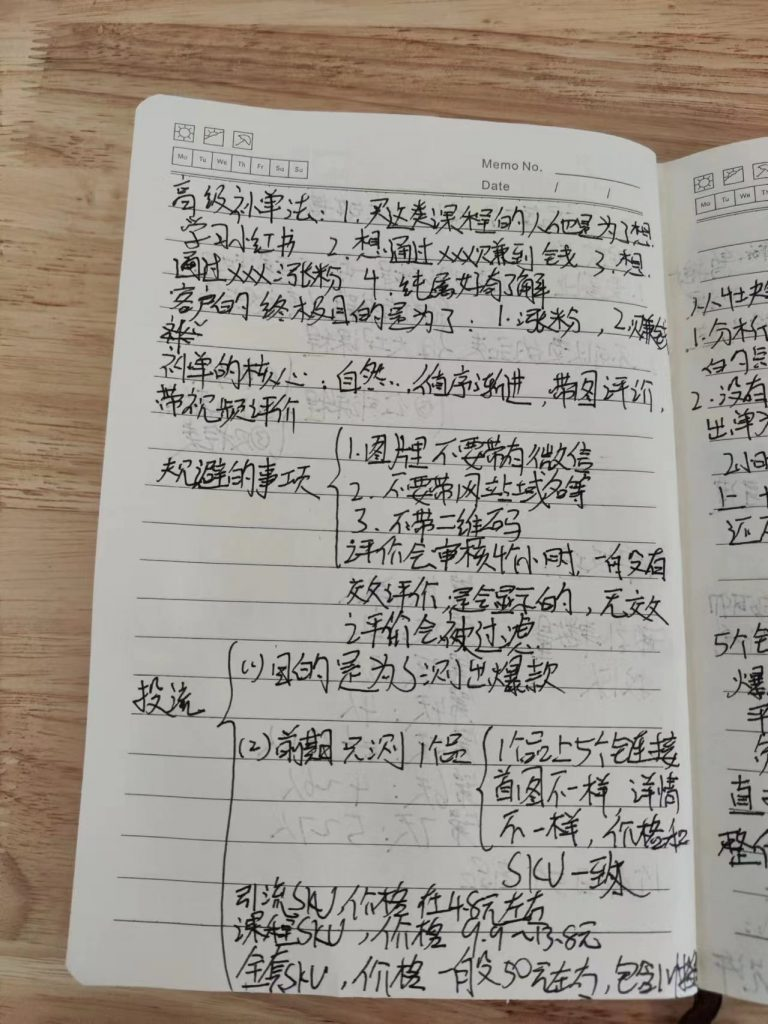 Mo Tu We Th Fr Sa Su
Memo No.
Date / /
高级补单法：1. 买这类课程的人他是为了想
学习小红书 2. 想通过XXX赚到钱 3. 想
通过XXX涨粉 4. 纯属好奇了解
客户的终极目的是为了：1. 涨粉，2. 赚钱
补单的核心：自然..，循序渐进，带图评价，
带视频评价
规避的事项
1. 图片里不要带有微信
2. 不要带网站域名等
3. 不带二维码
评价会审核4个小时，一般没有
效评价，是会显示的，无效
评价会被过滤
投流
(1) 目的是为了测出爆款
(2) 前期只测1个品
1个品上5个链接
首图不一样 详情
不一样，价格和
SKU一致
引流SKU，价格在4.8元左右
课程SKU，价格9.9～13.8元
全套SKU，价格一般50元左右，包含
Mo Tu We Th
1. 分析
2. 没有
出单
2小时
5个
爆
平
直
整个